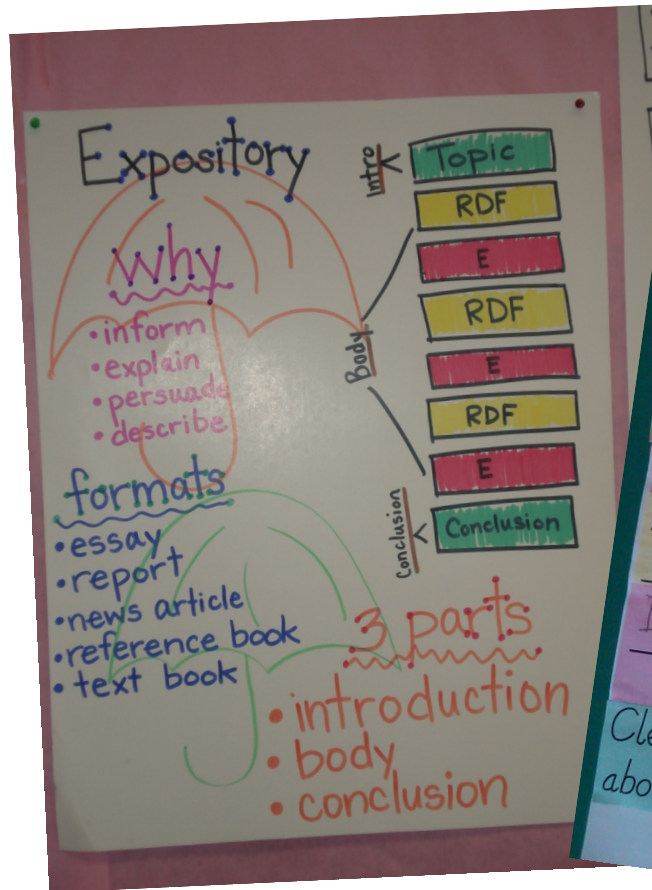 Expository
why
• inform
• explain
• persuade
• describe
formats
• essay
• report
• news article
• reference book
• text book
Intro
Topic
Body
RDF
E
RDF
E
RDF
E
Conclusion
Conclusion
3 parts
• introduction
• body
• conclusion